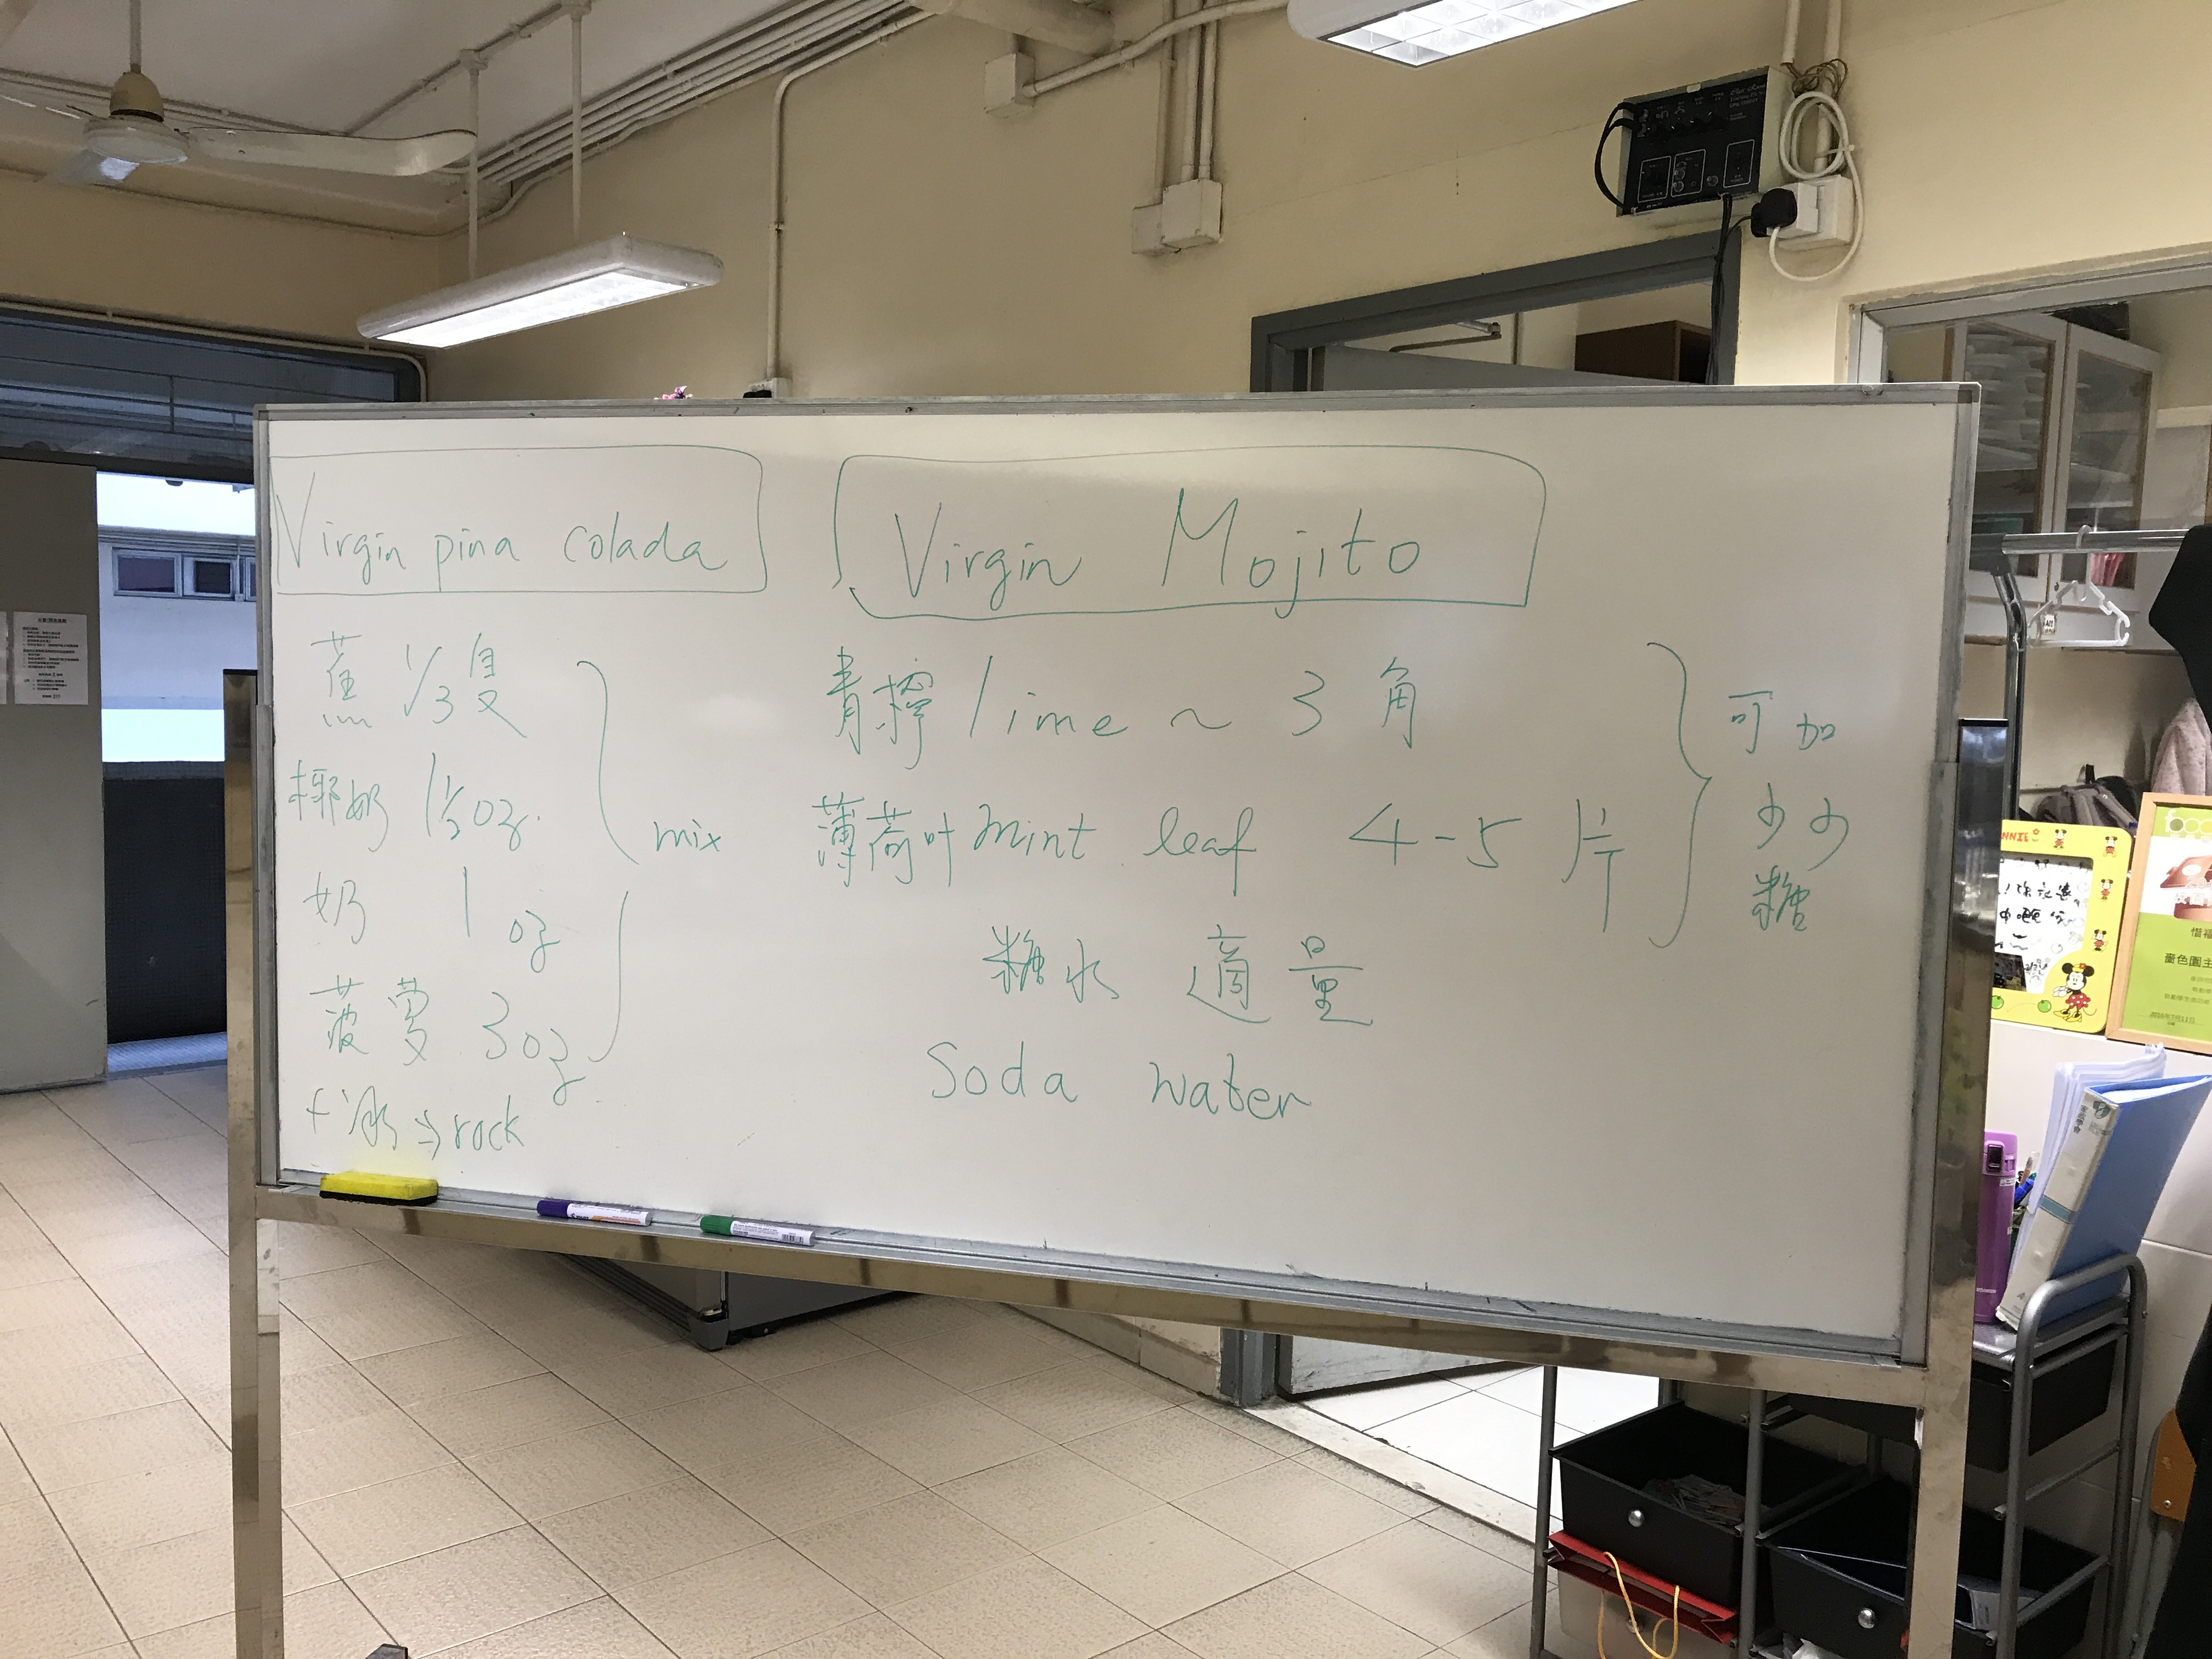 Virgin pina colada
蕉 1/3隻
椰奶 1 1/2 oz.
奶 1 oz
菠蘿 3oz
+冰 → rock
mix
Virgin Mojito
青檸 lime ~ 3 角
薄荷叶 mint leaf 4-5 片
糖水 適量
Soda water
可加
少少
糖
NNIE
惜福
嗇色園主